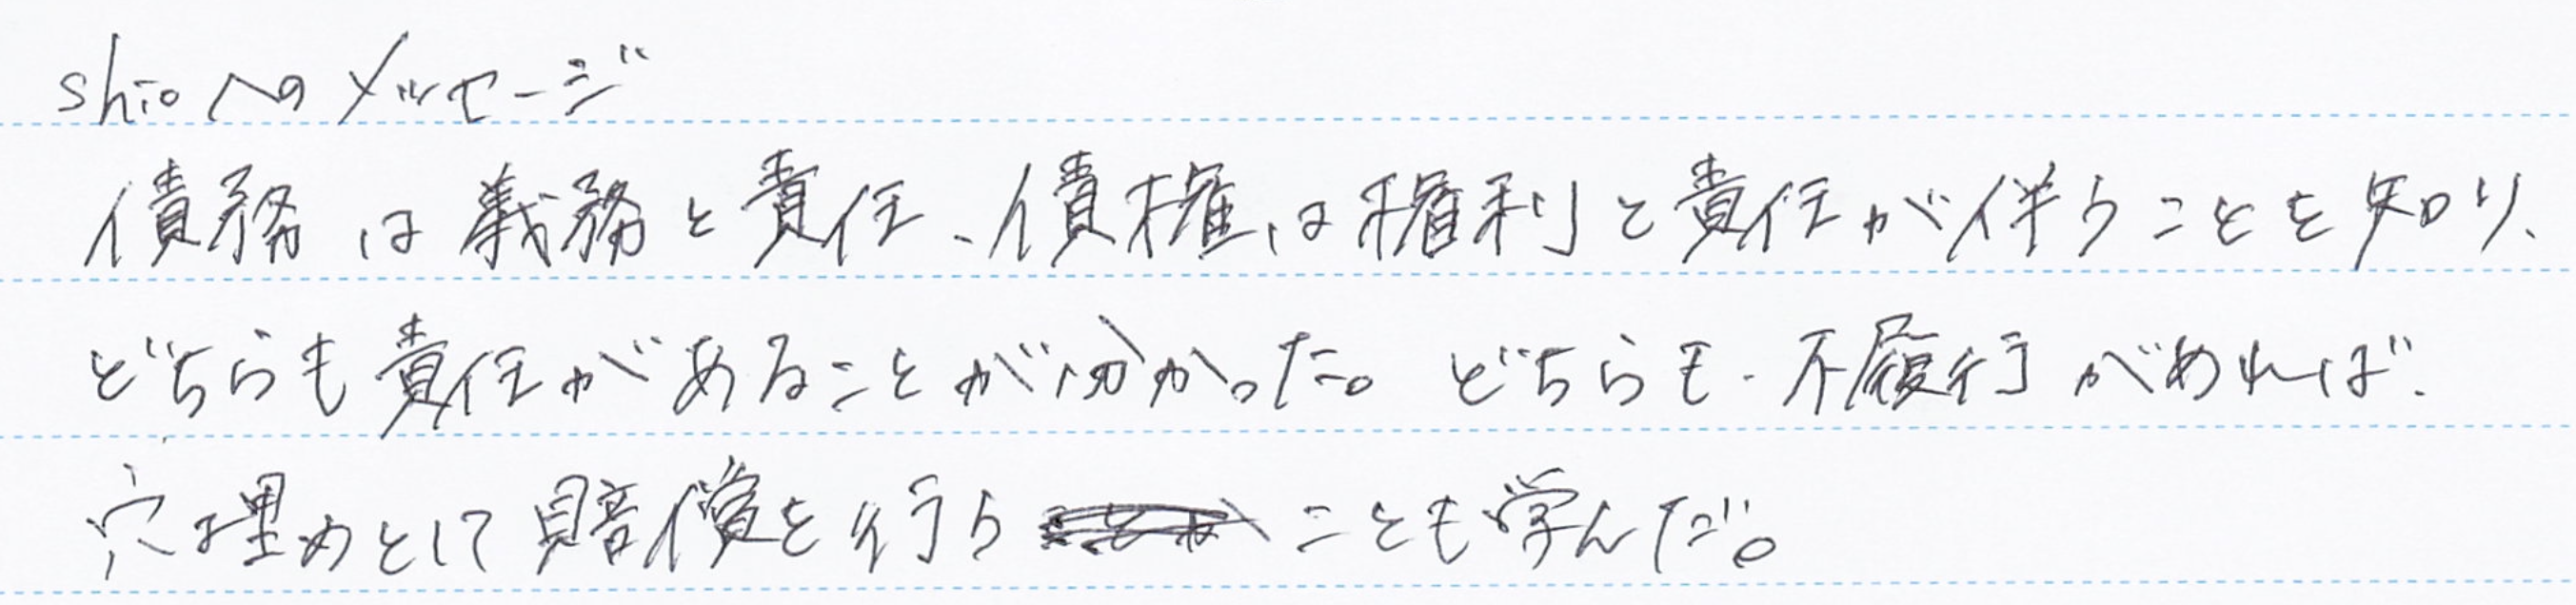 shioへのメッセージ
債務は義務と責任、債権は権利と責任が伴うことを知り、
どちらも責任があることが分かった。どちらも、不履行があれば、
穴埋めとして賠償を行うことも学んだ。